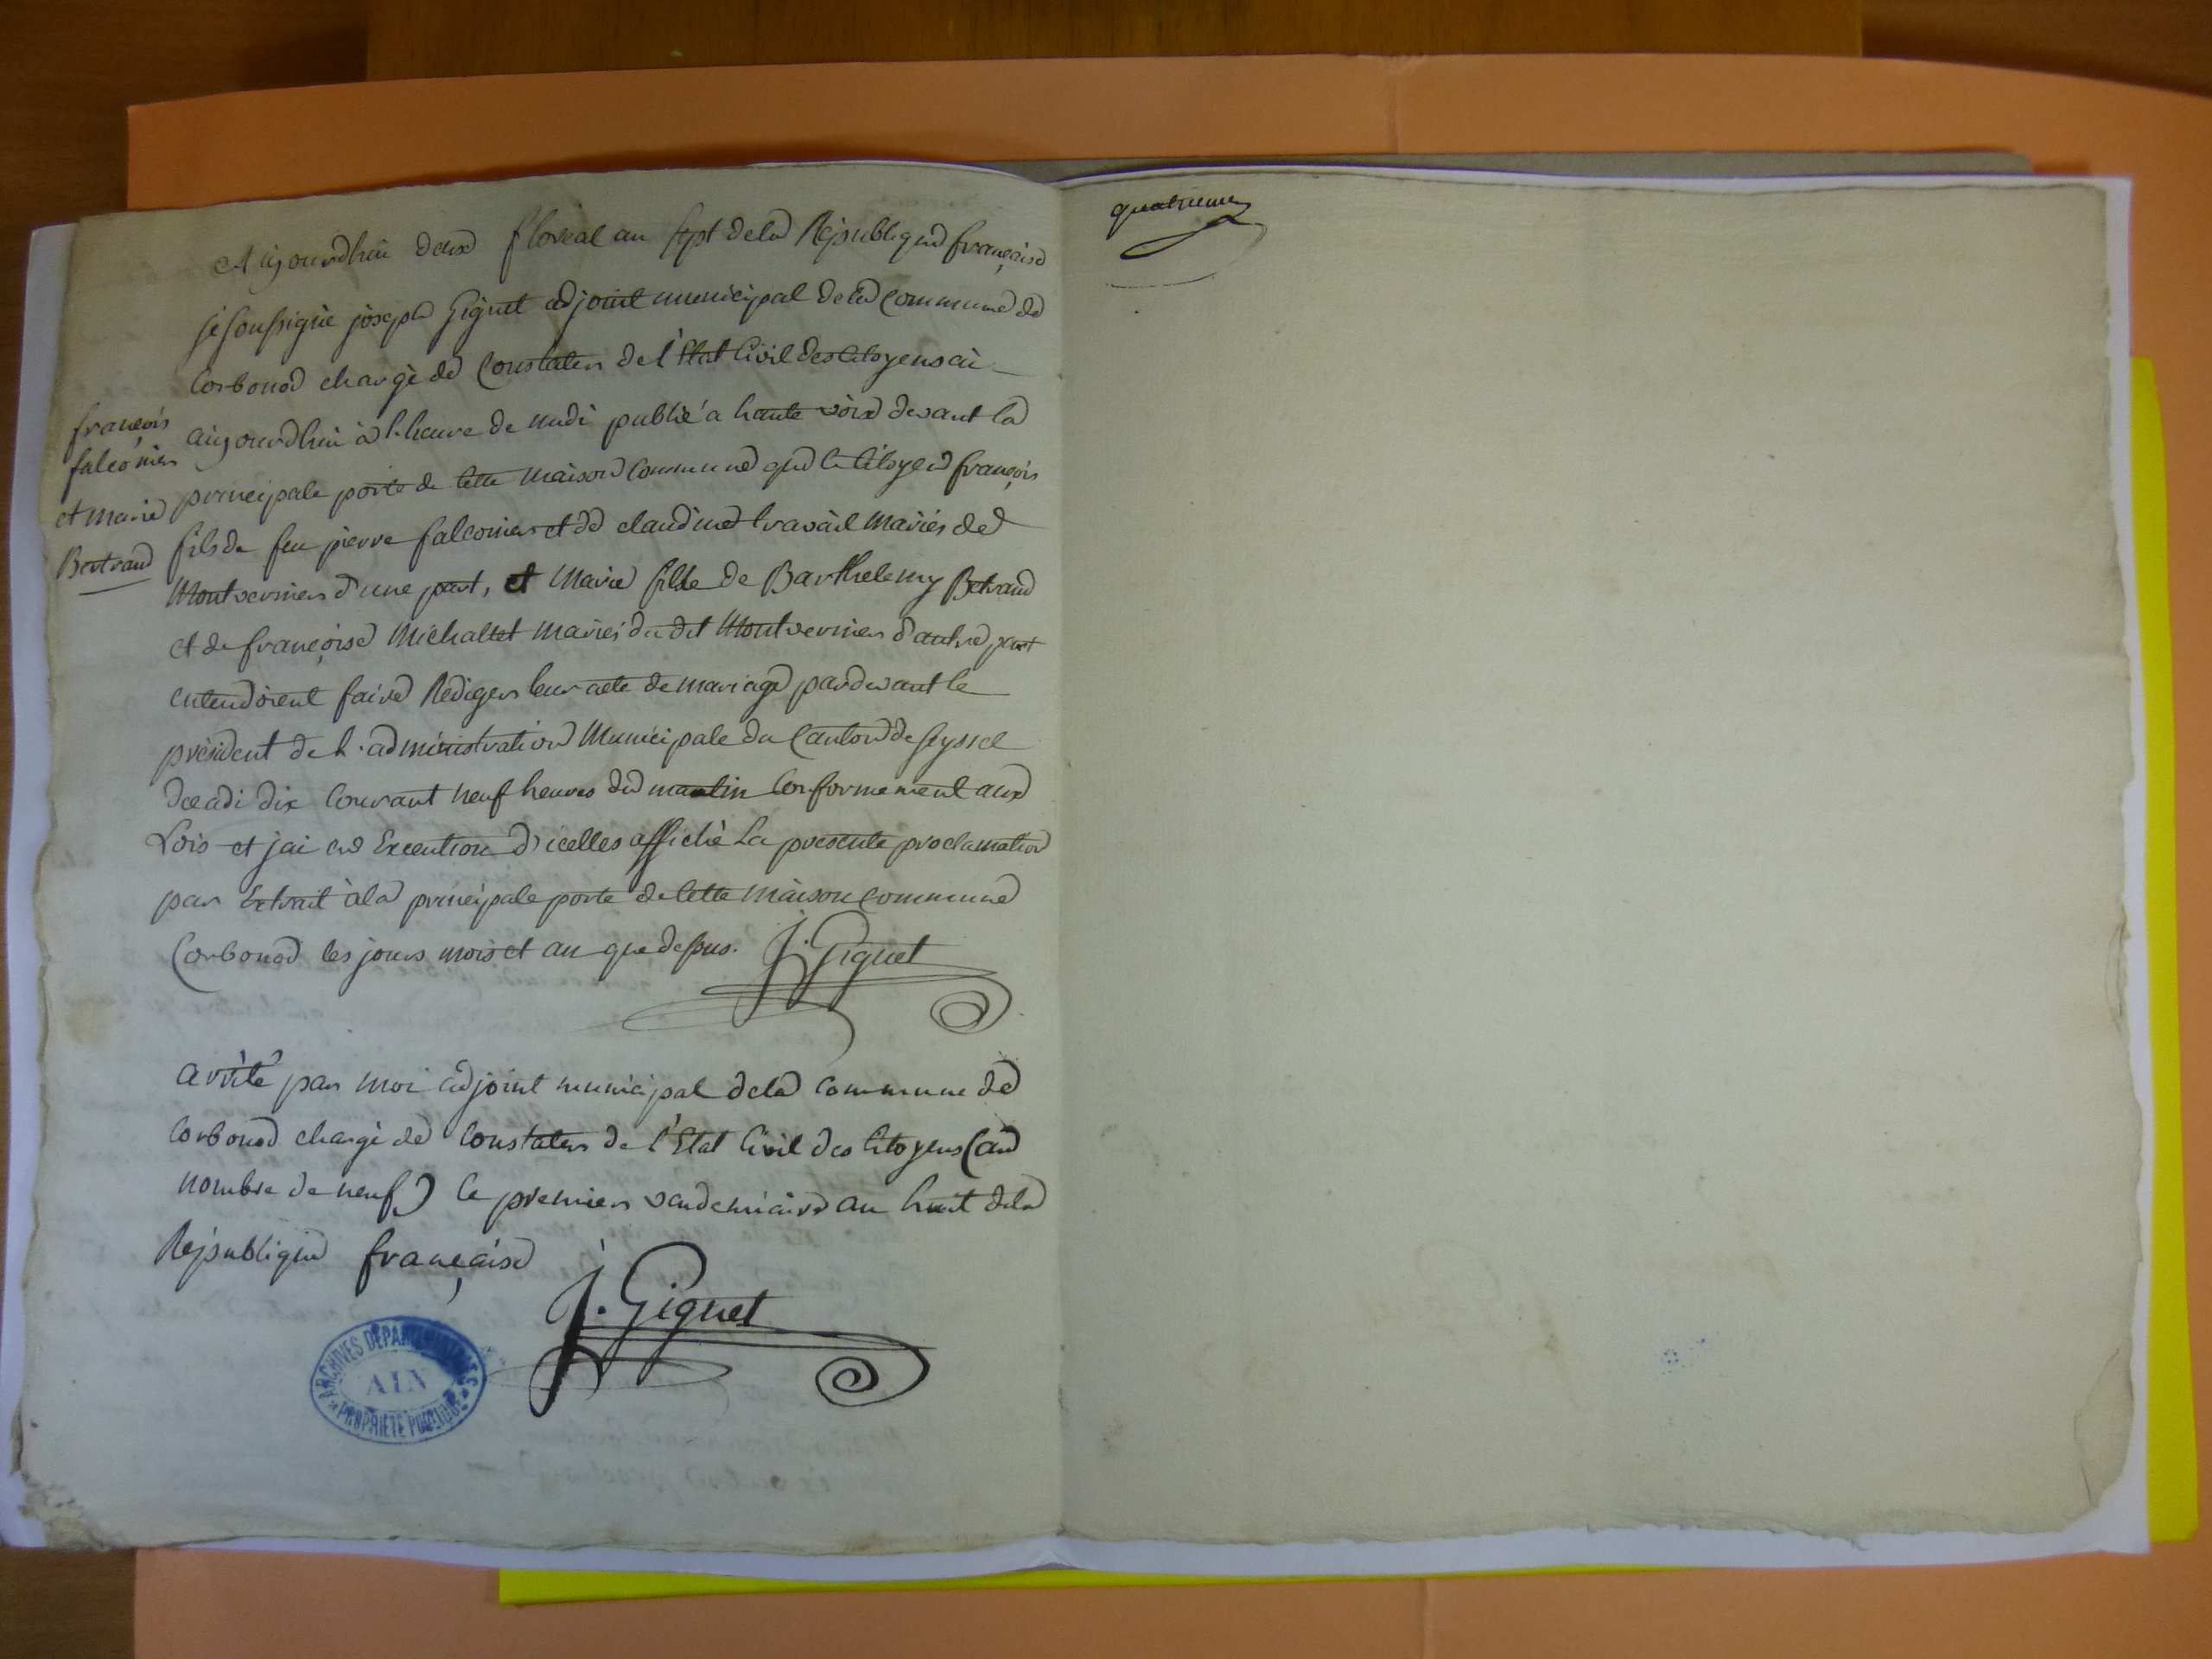 Aujourdhui deux floreal an sept dela Republique françaisse
je soussignè joseph Giguet adjoint municipal dela Commune de
Corbonod chargè de Constater de l'Etat Civil des Citoyens ai
françois
falconier
et marie
Bertrand
aujourdhui à l'heure de midi publié a haute voix devant la
principale porte de Cette maison Commune que le Citoyen françois
fils de feu pierre falconier et de claudine travail mariés de
Montvernier d'une part, et Marie fille de Barthelemy Betrand
et de françoise Michallet mariés du dit Montvernier d'autre part
entendoient faire Rediger leur acte de mariage pardevant le
president de l'administration Municipale du Canton de seyssel
decadi dix Courant neuf heures du matin Conformement aux
Lois et jai en Execution d'icelles affichè La presente proclamation
par Extrait à la principale porte de Cette maison Commune
Corbonod les jours mois et an que dessus. J. Giguet
arrèté par moi adjoint municipal dela Commune de
Corbonod chargè de Constater de l'Etat Civil des Citoyens (au
nombre de neuf) le premier vendemiaire an huit dela
Republique française
J. Giguet
ARCHIVES DÉPARTEMENTALES
AIN
PROPRIÉTÉ PUBLIQUE
quatrieme